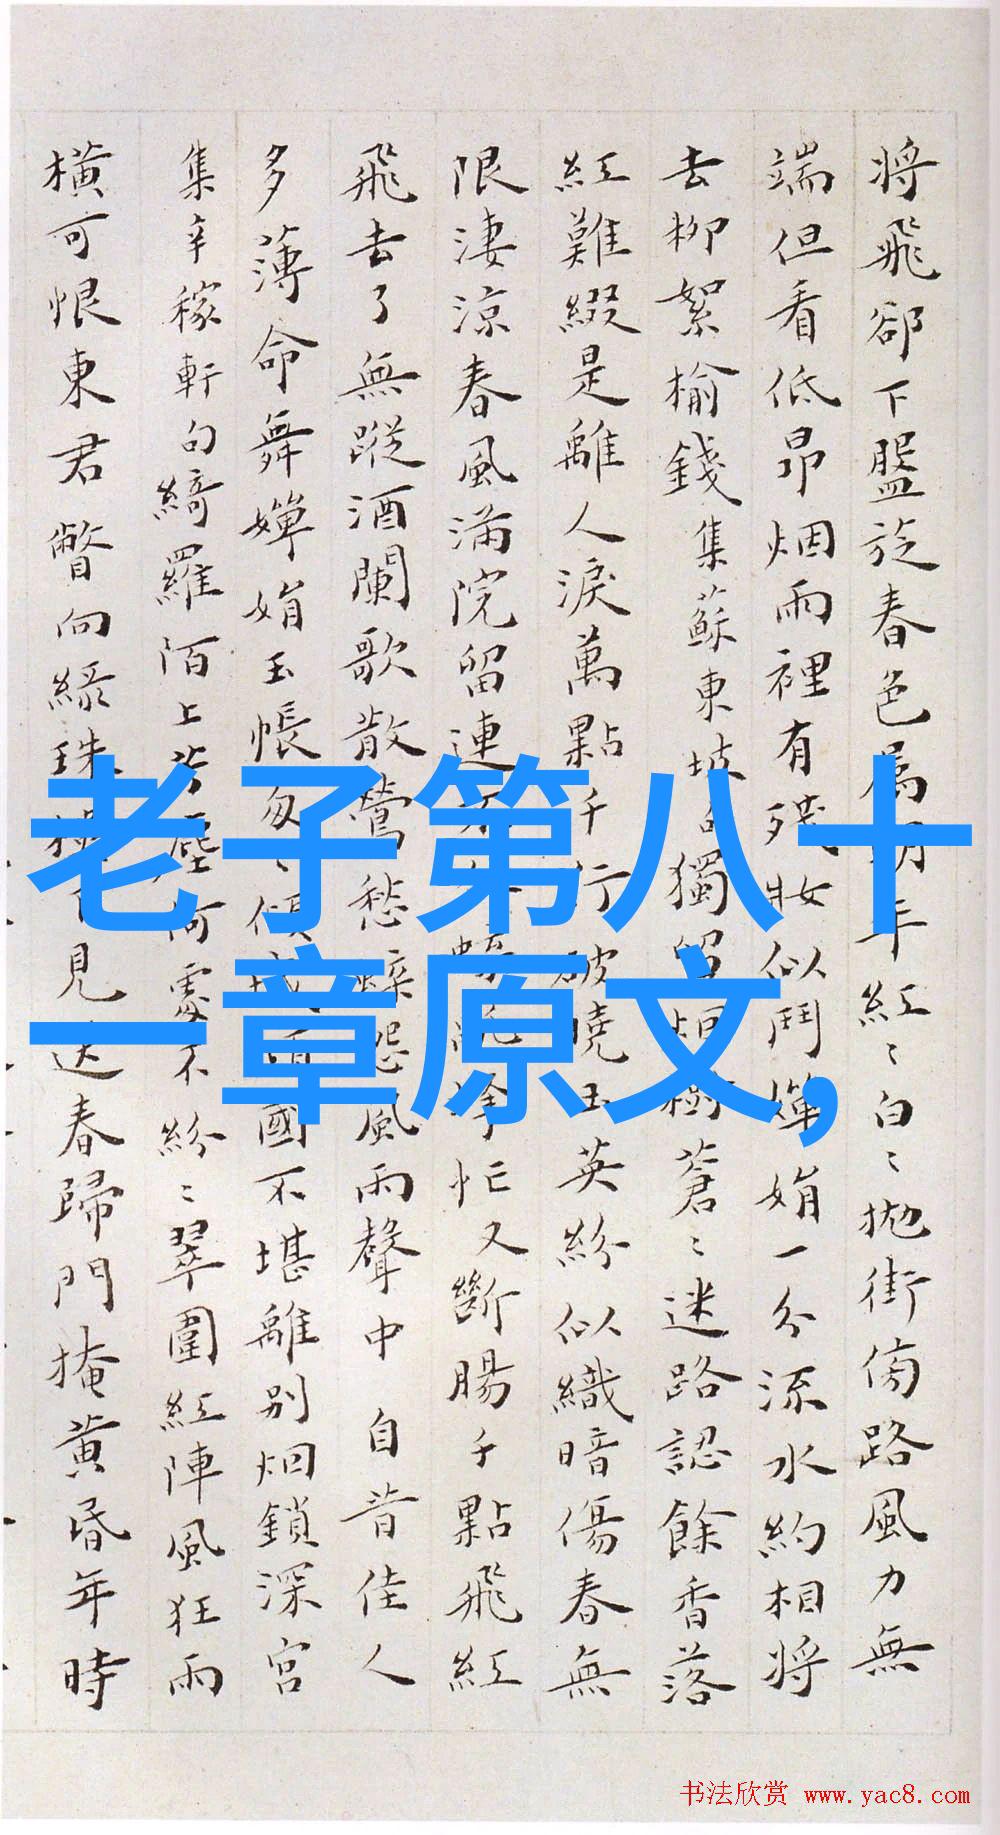 将飛卻下盤旋春色為明年紅〻白〻抛街傍路風力無
端但看低昂烟雨裡有殘妝似鬥嬋娟一分流水約相將
去柳絮榆錢集蘇東坡句獨留垣樹蒼〻迷路認餘香落
紅難綴是離人淚萬點千行破曉玉英紛似織暗傷春無
限淒涼春風滿院留連忙又斷腸千點飛紅
飛去了無蹤酒闌歌散鶯愁蝶怨風雨聲中 自昔佳人
多薄命舞嬋娟玉帳匆〻傾城傾國不堪離別烟鎖深宮
集辛稼軒句綺羅陌上芳塵何處不紛〻翠圍紅陣風狂雨
橫可恨東君瞥向綠珠樓下見送春歸門掩黄昏年時
老子第八十
一章原文,
书法欣赏 www.yac8.com